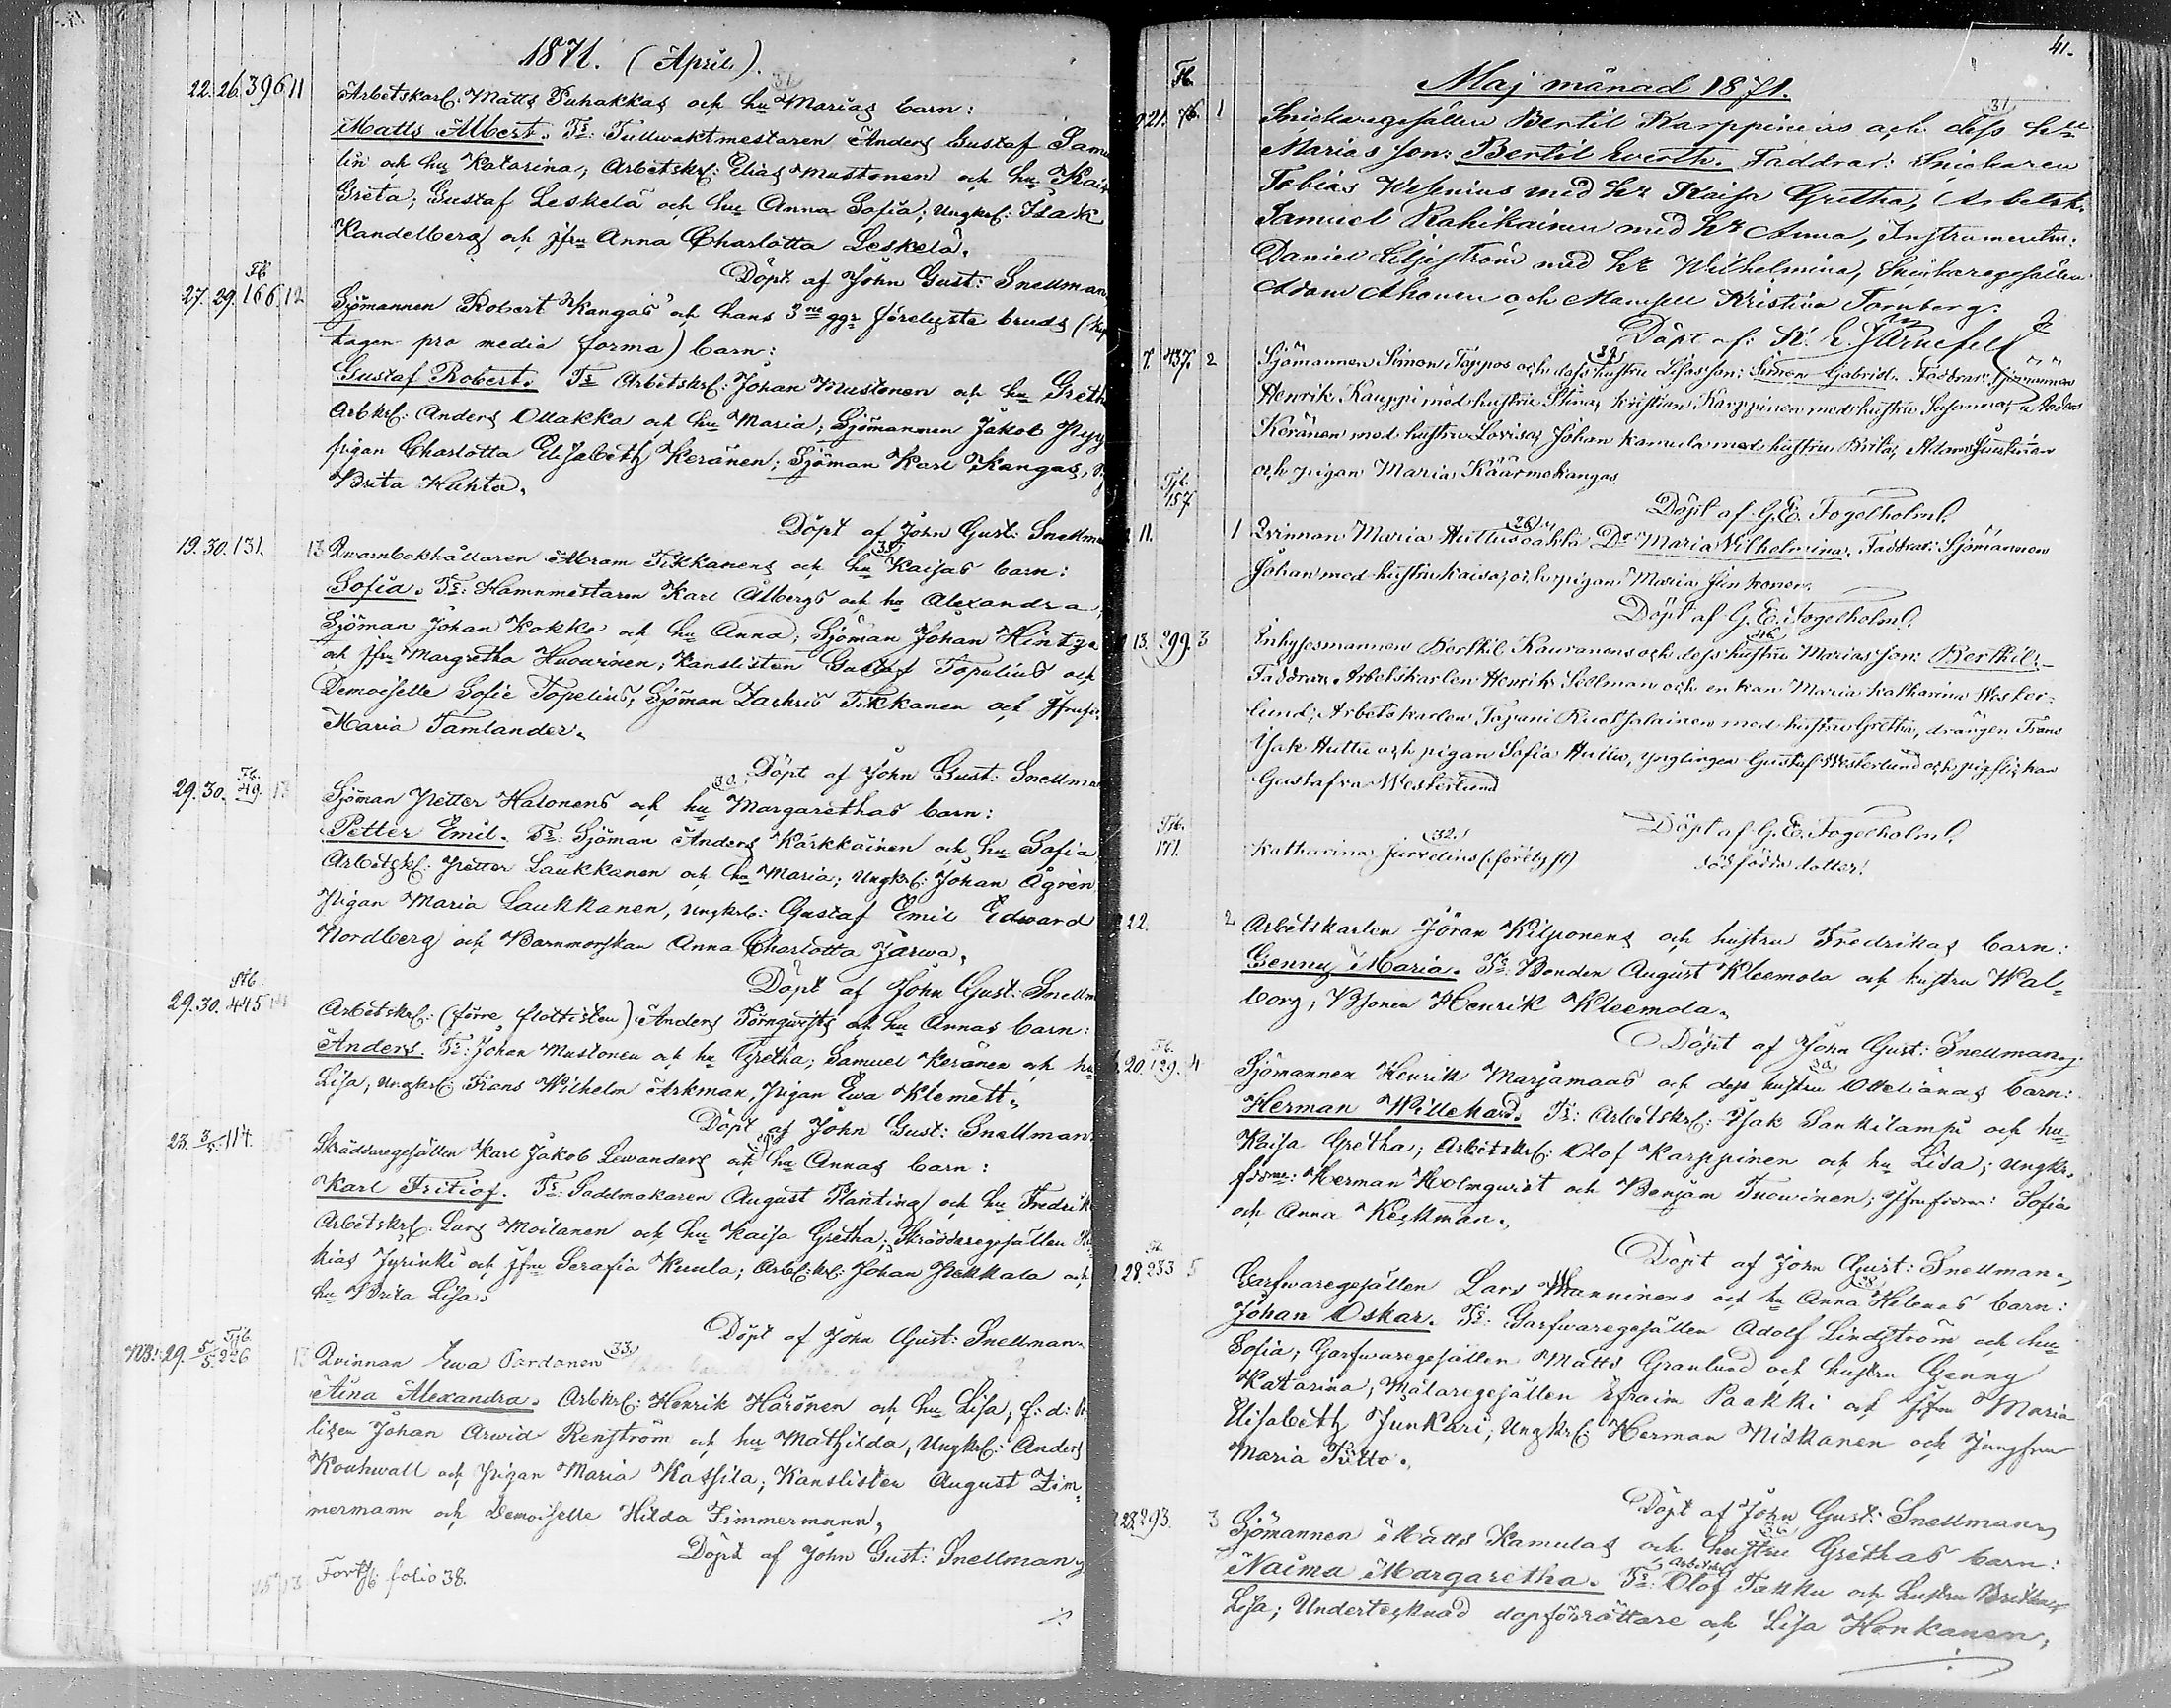 1871. (April).
31
22. 26. 396. 11 Arbetskarl: Matts Puhakkas och hu Marias barn:
Matts Albert. Fr: Tullwaktmestaren Anders Gustaf Same
lin och hu Katarina; Arbetskrl: Elias Mustonen och hu Kaisa
Greta; Gustaf Leskelä och hu Anna Sofia; Ungkrl: Isak
Kandelberg och jfru Anna Charlotta Leskelä.
Döpt af John Gust: Snellman
Fb.
27. 29. 166. 12 Sjömannen Robert Kangas' och hans 3ne ggr förelyste bruds
tagen pro media forma) barn:
Gustaf Robert. Fr Arbetskrl: Johan Mustonen och hu Greth
Arbkrl: Anders Ollakka och hu Maria; Sjömannen Jakob
pigan Charlotta Elisabeth Keränen; Sjöman Karl Kangas,
Brita Huhta.
Döpt af John Gust: Snellma
39
19. 30. 131. 13 Qwarnbokhållaren Abram Tikkanens och hu Kaisas barn:
Sofia. Fr: Hamnmestaren Karl Ålbergs och hu Alexandra,
Sjöman Johan Kokko och hu Anna; Sjöman Johan Hintza
och jfru Margretha Huowinen; Kanslisten Gustaf Topelius och
Demoiselle Sofie Topelius; Sjöman Zachris Tikkanen och Jfru
Maria Tamlander.
Döpt af John Gust: Snellma
Fb. 30
29. 30. 49. 13 Sjöman Petter Halonens och hu Margarethas barn:
Petter Emil. Fr: Sjöman Anders Kärkkäinen och hu Sofia
Arbetskrl: Petter Laukkanen och hu Maria; Ungkrl: Johan Ågren,
Pigan Maria Laukkanen, Ungkrl: Gustaf Emil Edward
Nordberg och Barnmorskan Anna Charlotta Jarwa.
Döpt af John Gust: Snellm
29. 30. 445 14 Arbetskrl: (förre flottisten) Anders Törnqwists och hu Annas barn:
Anders. Fr: Johan Mustonen och hu Gretha; Samuel Keränen och hu
Lisa; Ungkrl: Frans Wilhelm Arkman, Pigan Ewa Klemett.
Döpt af John Gust: Snellman
23. 3/5. 114. Skräddaregesällen Karl Jakob Lewanders och hu Annas barn:
Karl Fritiof. Fr: Sadelmakaren August Planting och hu Fredrik
Arbetskrl: Lars Moilanen och hu Kaisa Gretha; Skräddaregesällen
kias Jyrinki och jfru Serafia Kuula; Arb:krl: Johan Pekkala och
hu Brita Lisa.
Döpt af John Gust: Snellman
Fjb. 33
NB! 29. 5/5. 226 Qvinnan Ewa Pardanen
Aina Alexandra. Arbkrl: Henrik Härönen och hu Lisa; f:d:
lisen Johan Arwid Renström och hu Mathilda, Ungkrl: Anders
Kouhwall och pigan Maria Kassila; Kanslisten August Zim-
mermann och Demoiselle Hilda Zimmermann,
Döpt af John Gust: Snellman
Forts: folio 38.
41.
Fb.
Maj månad 1871.
31
21. 76. 1 Snickaregesällen Bertil Karppinens och dess hu
Marias son: Bertil Everth. Faddrar: Snickaren
Tobias Wesenius med hu Kaisa Gretha, Arbetsk.
Samuel Rahikainen med hu Anna, Instrumentm.
Daniel Liljeström med hu Wilhelmina, Snickaregesällen
Adam Ahonen och Mamsell Kristina Tornberg.
Döpt af: K. E. Järnefelt
32
7. 437. 2 Sjömannen Simon Tappos och dess hustru Lisas son: Simon Gabriel. Faddrar: Sjömännen
Henrik Kauppi med hustru Stina, Kristian Karppinen med hustru Susanna, Anders
Keränen med hustru Lovisa, Johan Kamula med hustru Brita, Adam Juntinen
och pigan Maria Kaarmakangas.
Döpt af G. E. Fogelholm.
Fjb.
157
26
11. 1 Qvinnan Maria Huttus oäkta Dr Maria Vilhelmina. Faddrar: Sjömannen
Johan med hustru Kaisa, och pigan Maria Junkonen.
Döpt af G. E. Fogelholm.
46
13. 299. 3 Inhysesmannen Berthil Kauranens och dess hustru Marias son: Berthil.
Faddrar: Arbetskarlen Henrik Sellman och enkan Maria Katharina Wester-
lund; Arbetskarlen Tapani Ruotsalainen med hustru Gretha, drängen Frans
Isak Huttu och pigan Sofia Huttu, ynglingen Gustaf Westerlund och pigflickan
Gustafva Westerlund
Döpt af G. E. Fogelholm.
Fjb.
171. 32.
Katharina Jurvelius (förelyst) dödfödda dotter!
22. 2 Arbetskarlen Jöran Kilponens och hustru Fredrikas barn:
Genny Maria. Fr: Bonden August Kleemola och hustru Wal-
borg, Bsonen Henrik Kleemola.
Döpt af John Gust: Snellman
Fb. 30
20. 129. 4 Sjömannen Henrik Marjamaas och dess hustru Ottelianas barn:
Herman Willehard. Fr: Arbetskrl: Isak Sankilampi och hu
Kaisa Gretha; Arbetskrl: Olof Karppinen och hu Lisa; ungkr.
Herman Holmqwist och Benjam Tuowinen; Sofia
och Anna Keckman.
Döpt af John Gust: Snellman.
28. 233 5 Garfwaregesällen Lars Manninens och hu Anna Helenas barn:
Johan Oskar. Fr: Garfwaregesällen Adolf Lindström och hu
Sofia; Garfwaregesällen Matts Granlund och hustru Genny
Katarina; Målaregesällen Efraim Paakki och jfru Maria
Elisabeth Junkari; Ungkrl: Herman Niskanen och Jungfru
Maria Tötto.
Döpt af John Gust: Snellman
36
28. 293. 3 Sjömannen Matts Kamulas och hustru Grethas barn:
Naima Margaretha. Fr: Arbetskrl Olof Takku och hustru Brita
Lisa; Undertecknad dopförrättare och Lisa Honkanen,